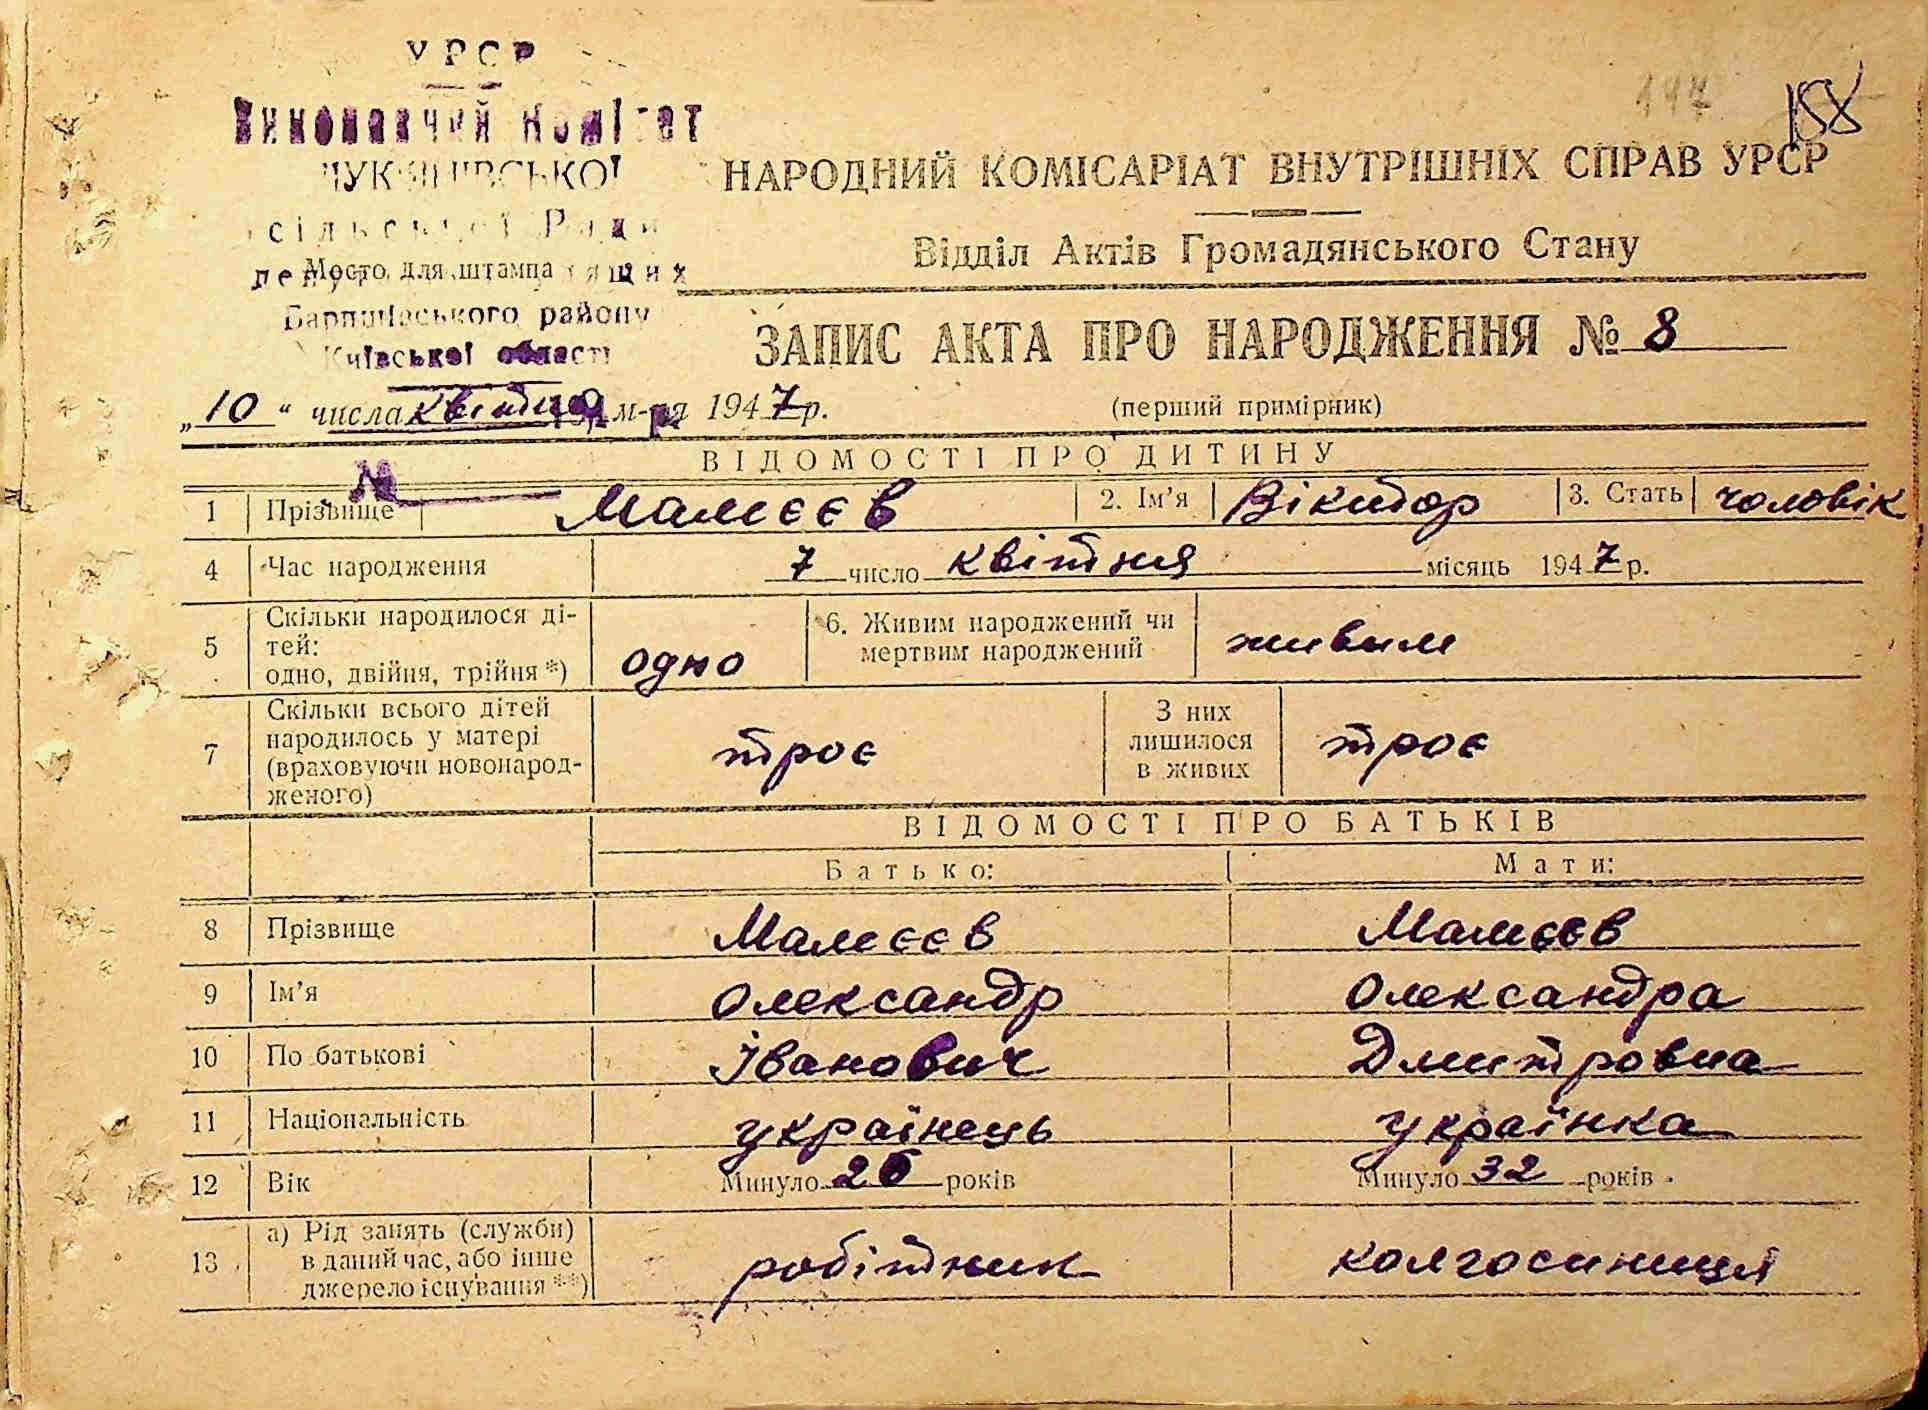 УРСР
Виконавчий Комітет
ЛУК'ЯНІВСЬКОЇ
сільської Ради
депутатів трудящих
Місто для штампа
Баришівського району
Київської області
147
158
НАРОДНИЙ КОМІСАРІАТ ВНУТРІШНІХ СПРАВ УРСР
Відділ Актів Громадянського Стану
ЗАПИС АКТА ПРО НАРОДЖЕННЯ № 8
„10“ числа квітня м-ця 1947 р. (перший примірник)
ВІДОМОСТІ ПРО ДИТИНУ
№
1 Прізвище Малєєв 2. Ім'я Віктор 3. Стать чоловік
4 Час народження 7 число квітня місяць 1947 р.
5 Скільки народилося ді-
тей:
одно, двійня, трійня *) одно 6. Живим народжений чи
мертвим народжений живым
7 Скільки всього дітей
народилось у матері
(враховуючи новонарод-
женого) троє З них
лишилося
в живих троє
ВІДОМОСТІ ПРО БАТЬКІВ
Батько: Мати:
8 Прізвище Малєєв Малєєв
9 Ім'я Олександр Олександра
10 По батькові Іванович Дмитровна
11 Національність українець українка
12 Вік Минуло 26 років Минуло 32 років
13 а) Рід занять (служби)
в даний час, або інше
джерело існування **) робітник колгоспниця